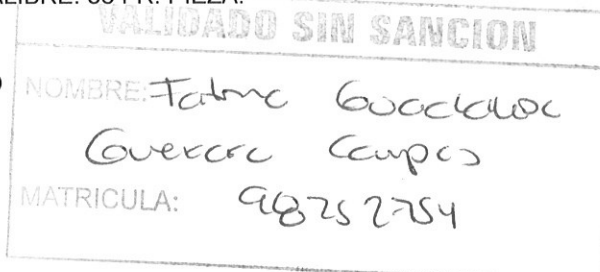 VALIDADO SIN SANCION
NOMBRE: Fatima Guadalupe
Guerrero Campos
MATRICULA: 98252754